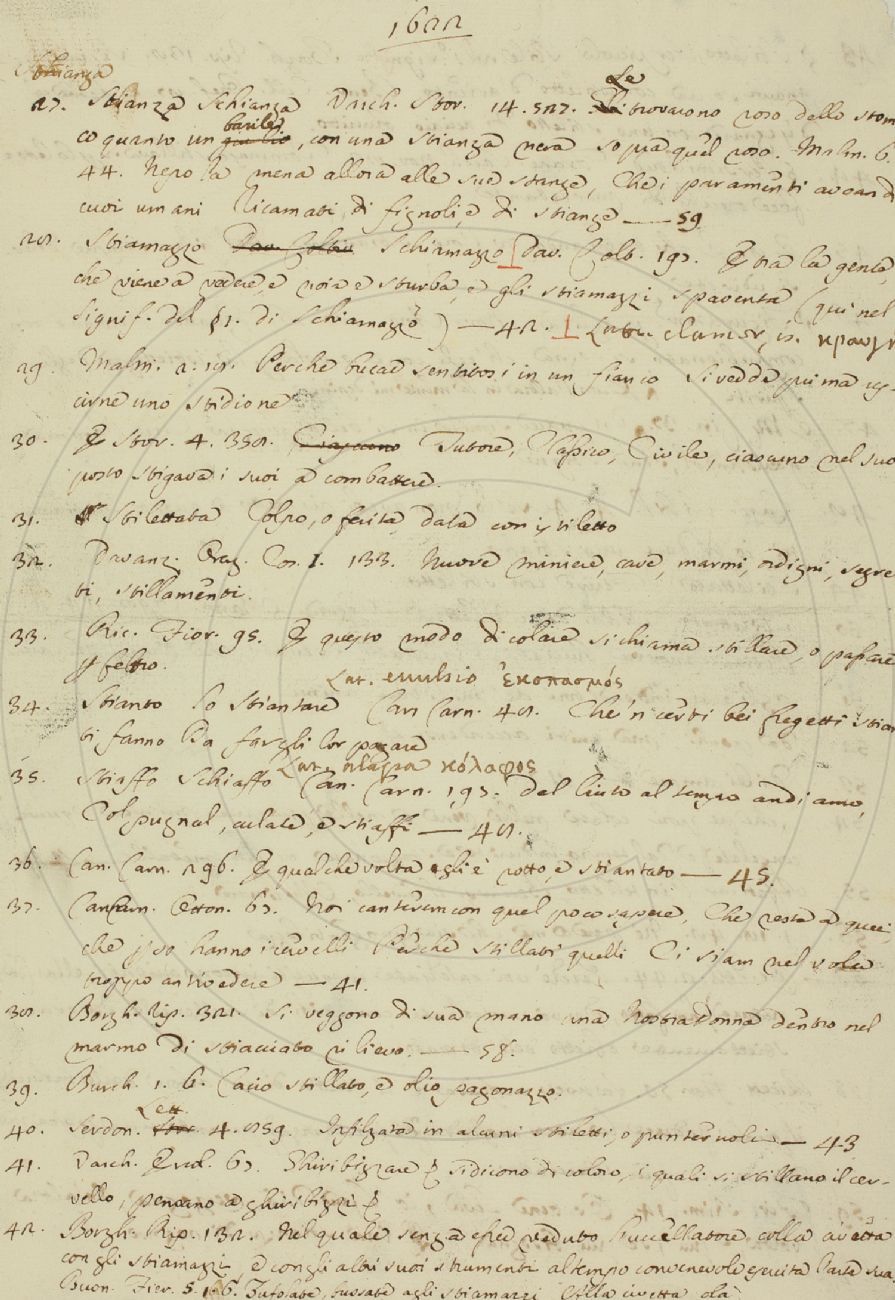 1622
Stianza
27. Stianza Schianza Varch. Stor. 14. 527. Le trovarono roso dello stoma
co quanto un barile, con una stianza nera sopra quel roso. Malm. 6.
44. Nepo la mena allora alle sue stanze, Che i paramenti avean di
cuoi umani Ricamati di fignoli, e di stianze — 59
28. Stiamazzo Schiamazzo Dav. Colt. 197. E tra la gente,
che viene a vedere, e noia e sturba, e gli stiamazzi spaventa (qui nel
signif. del §1. di Schiamazzo) — 42. Lat. clamor, is.
29. Malm. 2. Perchè bucar sentitosi in un fianco Si vedde prima us-
cirne uno stidione
30. E Stor. 4. 350. Tutore, Classico, Civile, ciascuno nel suo
posto stigava i suoi a combattere.
31. Stilettata Colpo, o ferita data con istiletto
32. Davanz. Oraz. Cos. I. 133. Nuove miniere, cave, marmi, ordigni, segre
ti, stillamenti.
33. Ric. Fior. 95. E questo modo di colare si chiama stillare, o passare
p feltro.
Lat. evulsio ἐκσπασμός
34. Stianto Lo stiantare Can. Carn. 48. Che 'n certi bei fregetti stian
ti fanno Da fargli lor pagare
Lat. plagra κόλαφος
35. Stiaffo Schiaffo Can. Carn. 197. Del liuto al tempo andiamo,
Col pugnal, culate, e stiaffi — 48.
36. Can. Carn. 296. E qualche volta egli è rotto, e stiantato — 45.
37. Can. Carn. Otton. 67. Noi canterem con quel poco sapere, Che resta a quei,
che perso hanno i cervelli Perchè stillati quelli Ci siam nel voler
troppo antivedere — 41.
38. Borgh. Rip. 321. Si veggono di sua mano una Nostra Donna dentro nel
marmo di stiacciato rilievo. — 58.
39. Burch. 1. 6. Cacio stillato, e olio pagonazzo.
40. Serdon. Lett. 4. 859. Infilzata in alcuni stiletti, o punteruoli — 43
41. Varch. Ercol. 67. Ghiribizzare si dicono di coloro, i quali si stillano il cer-
vello, pensano a ghiribizzi
42. Borgh. Rip. 132. Nel quale senza esser veduto l'uccellatore colla civetta
con gli stiamazzi, e con gli altri suoi strumenti al tempo convenevole esercita l'arte sua.
Buon. Fier. 5. 1. 6. Zufolate, bussate agli stiamazzi Alla civetta olà